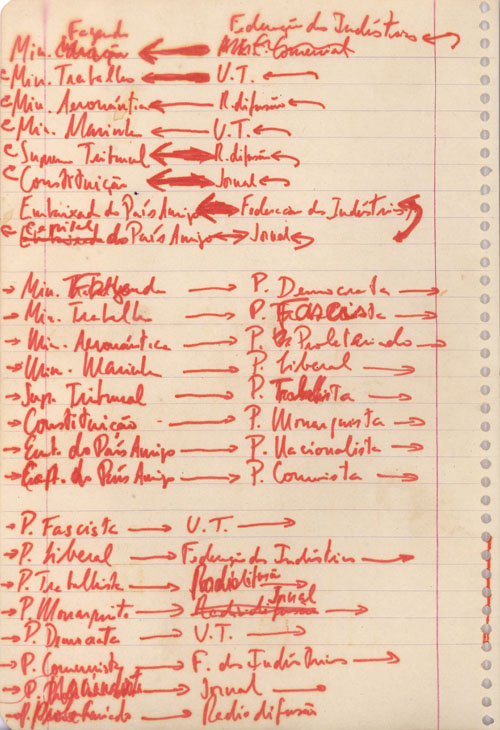 Fazenda Federação das Indústrias
Min. ←
Min. Trabalho ← U.T. ←
Min. Aeronáutica ← R.difusão ←
Min. Marinha ← U.T. ←
Supremo Tribunal ↔ R.difusão ←
Constituição ↔ Jornal ←
Embaixada do País Amigo ← Federacao das Indústrias
Capital do País Amigo ↔ Jornal ←
→ Min. Fazenda → P. Democrata →
→ Min. Trabalho → P. Fascista →
→ Min. Aeronáutica → P. Proletariado →
→ Min. Marinha → P. Liberal →
→ Supr. Tribunal → P. Trabalhista →
→ Constituição → P. Monarquista →
→ Emb. do País Amigo → P. Nacionalista →
→ Capt. do País Amigo → P. Comunista →
→ P. Fascista → U.T. →
→ P. Liberal → Federação das Indústrias →
→ P. Trabalhista → Radiodifusão →
→ P. Monarquista → Radiodifusão Jornal →
→ P. Democrata → U.T. →
→ P. Comunista → F. das Indústrias →
→ P. Nacionalista → Jornal →
→ P. Proletariado → Radiodifusão